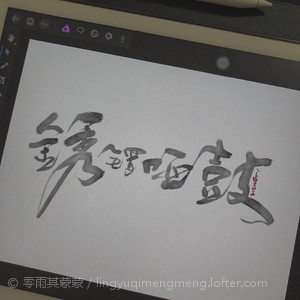 銹锣哑鼓
© 零雨其蒙蒙 / lingyuqimengmeng.lofter.com